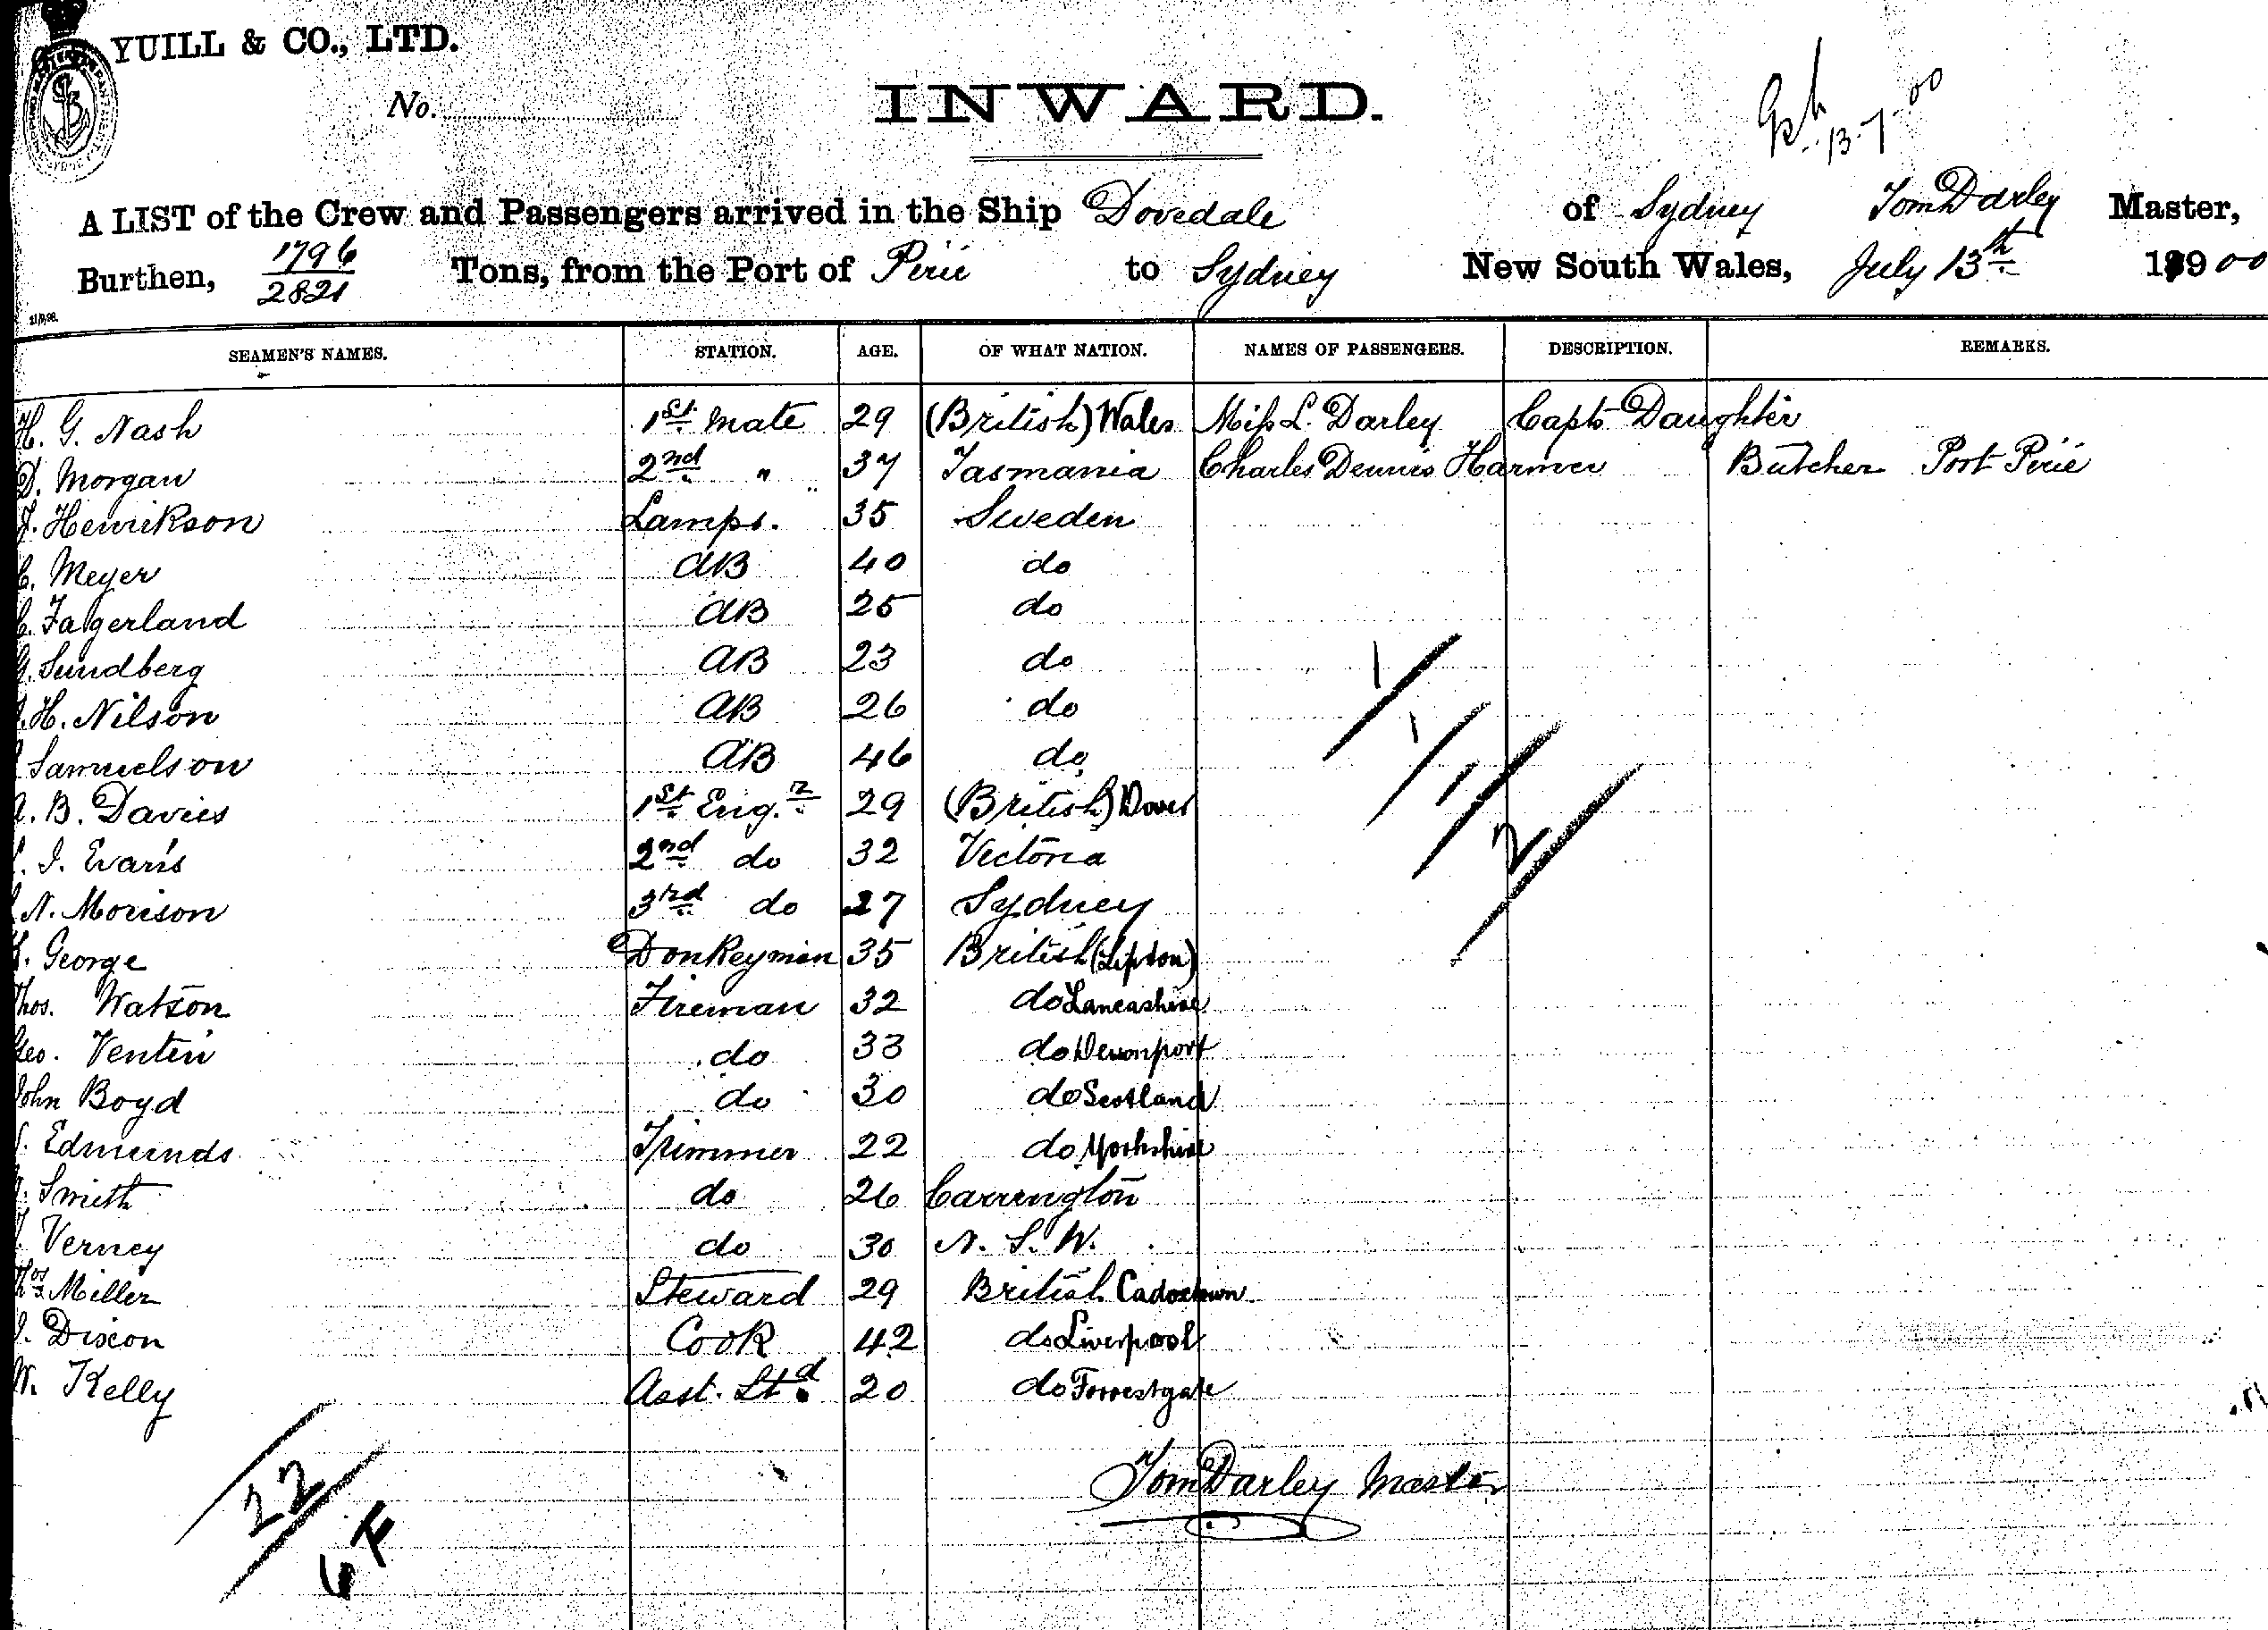 YUILL & CO., LTD.
No.
INWARD.
13-7-00
A LIST of the Crew and Passengers arrived in the Ship Dovedale of Sydney Tom Darley Master,
Burthen, 1796 / 2821 Tons, from the Port of Pirie to Sydney New South Wales, July 13th 1900
SEAMEN'S NAMES. STATION. AGE. OF WHAT NATION. NAMES OF PASSENGERS. DESCRIPTION. REMARKS.
H. G. Nash 1st mate 29 (British) Wales Miss L. Darley Capts Daughter
D. Morgan 2nd " 37 Tasmania Charles Dennis Harmer Butcher Port Pirie
Henrikson Lamps. 35 Sweden
C. Meyer AB 40 do
C. Fagerland AB 25 do
G. Sundberg AB 23 do
H. Nilson AB 26 do
Samuelson AB 46 do
A. B. Davies 1st Eng.r 29 (British) Dover
I. Evans 2nd do 32 Victoria
N. Morison 3rd do 27 Sydney
George Donkeyman 35 British (Lipton)
Thos. Watson Fireman 32 do Lancashire
Geo. Ventin do 33 do Devonport
John Boyd do 30 do Scotland
Edmunds Trimmer 22 do Yorkshire
Smith do 26 Carrington
Verney do 30 N. S. W.
Thos Miller Steward 29 British Cadoxtown
Dixon Cook 42 do Liverpool
W. Kelly Asst. Std 20 do Forrestgate
1
1
1
2
22
Tom Darley Master